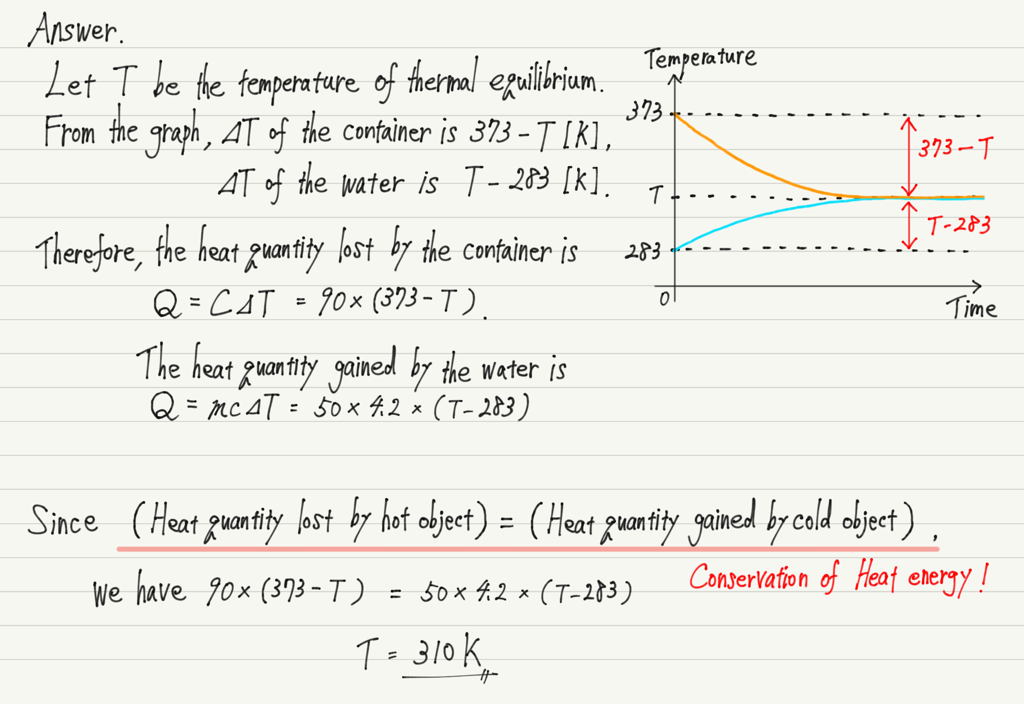 Answer.
Let T be the temperature of thermal equilibrium.
From the graph, ΔT of the container is 373-T [K],
ΔT of the water is T-283 [K].
Therefore, the heat quantity lost by the container is
Q = CΔT = 90×(373-T).
The heat quantity gained by the water is
Q = mcΔT = 50×4.2×(T-283)
Temperature
373
373-T
T
T-283
283
0
Time
Since (Heat quantity lost by hot object) = (Heat quantity gained by cold object),
Conservation of Heat energy!
We have 90×(373-T) = 50×4.2×(T-283)
T = 310K